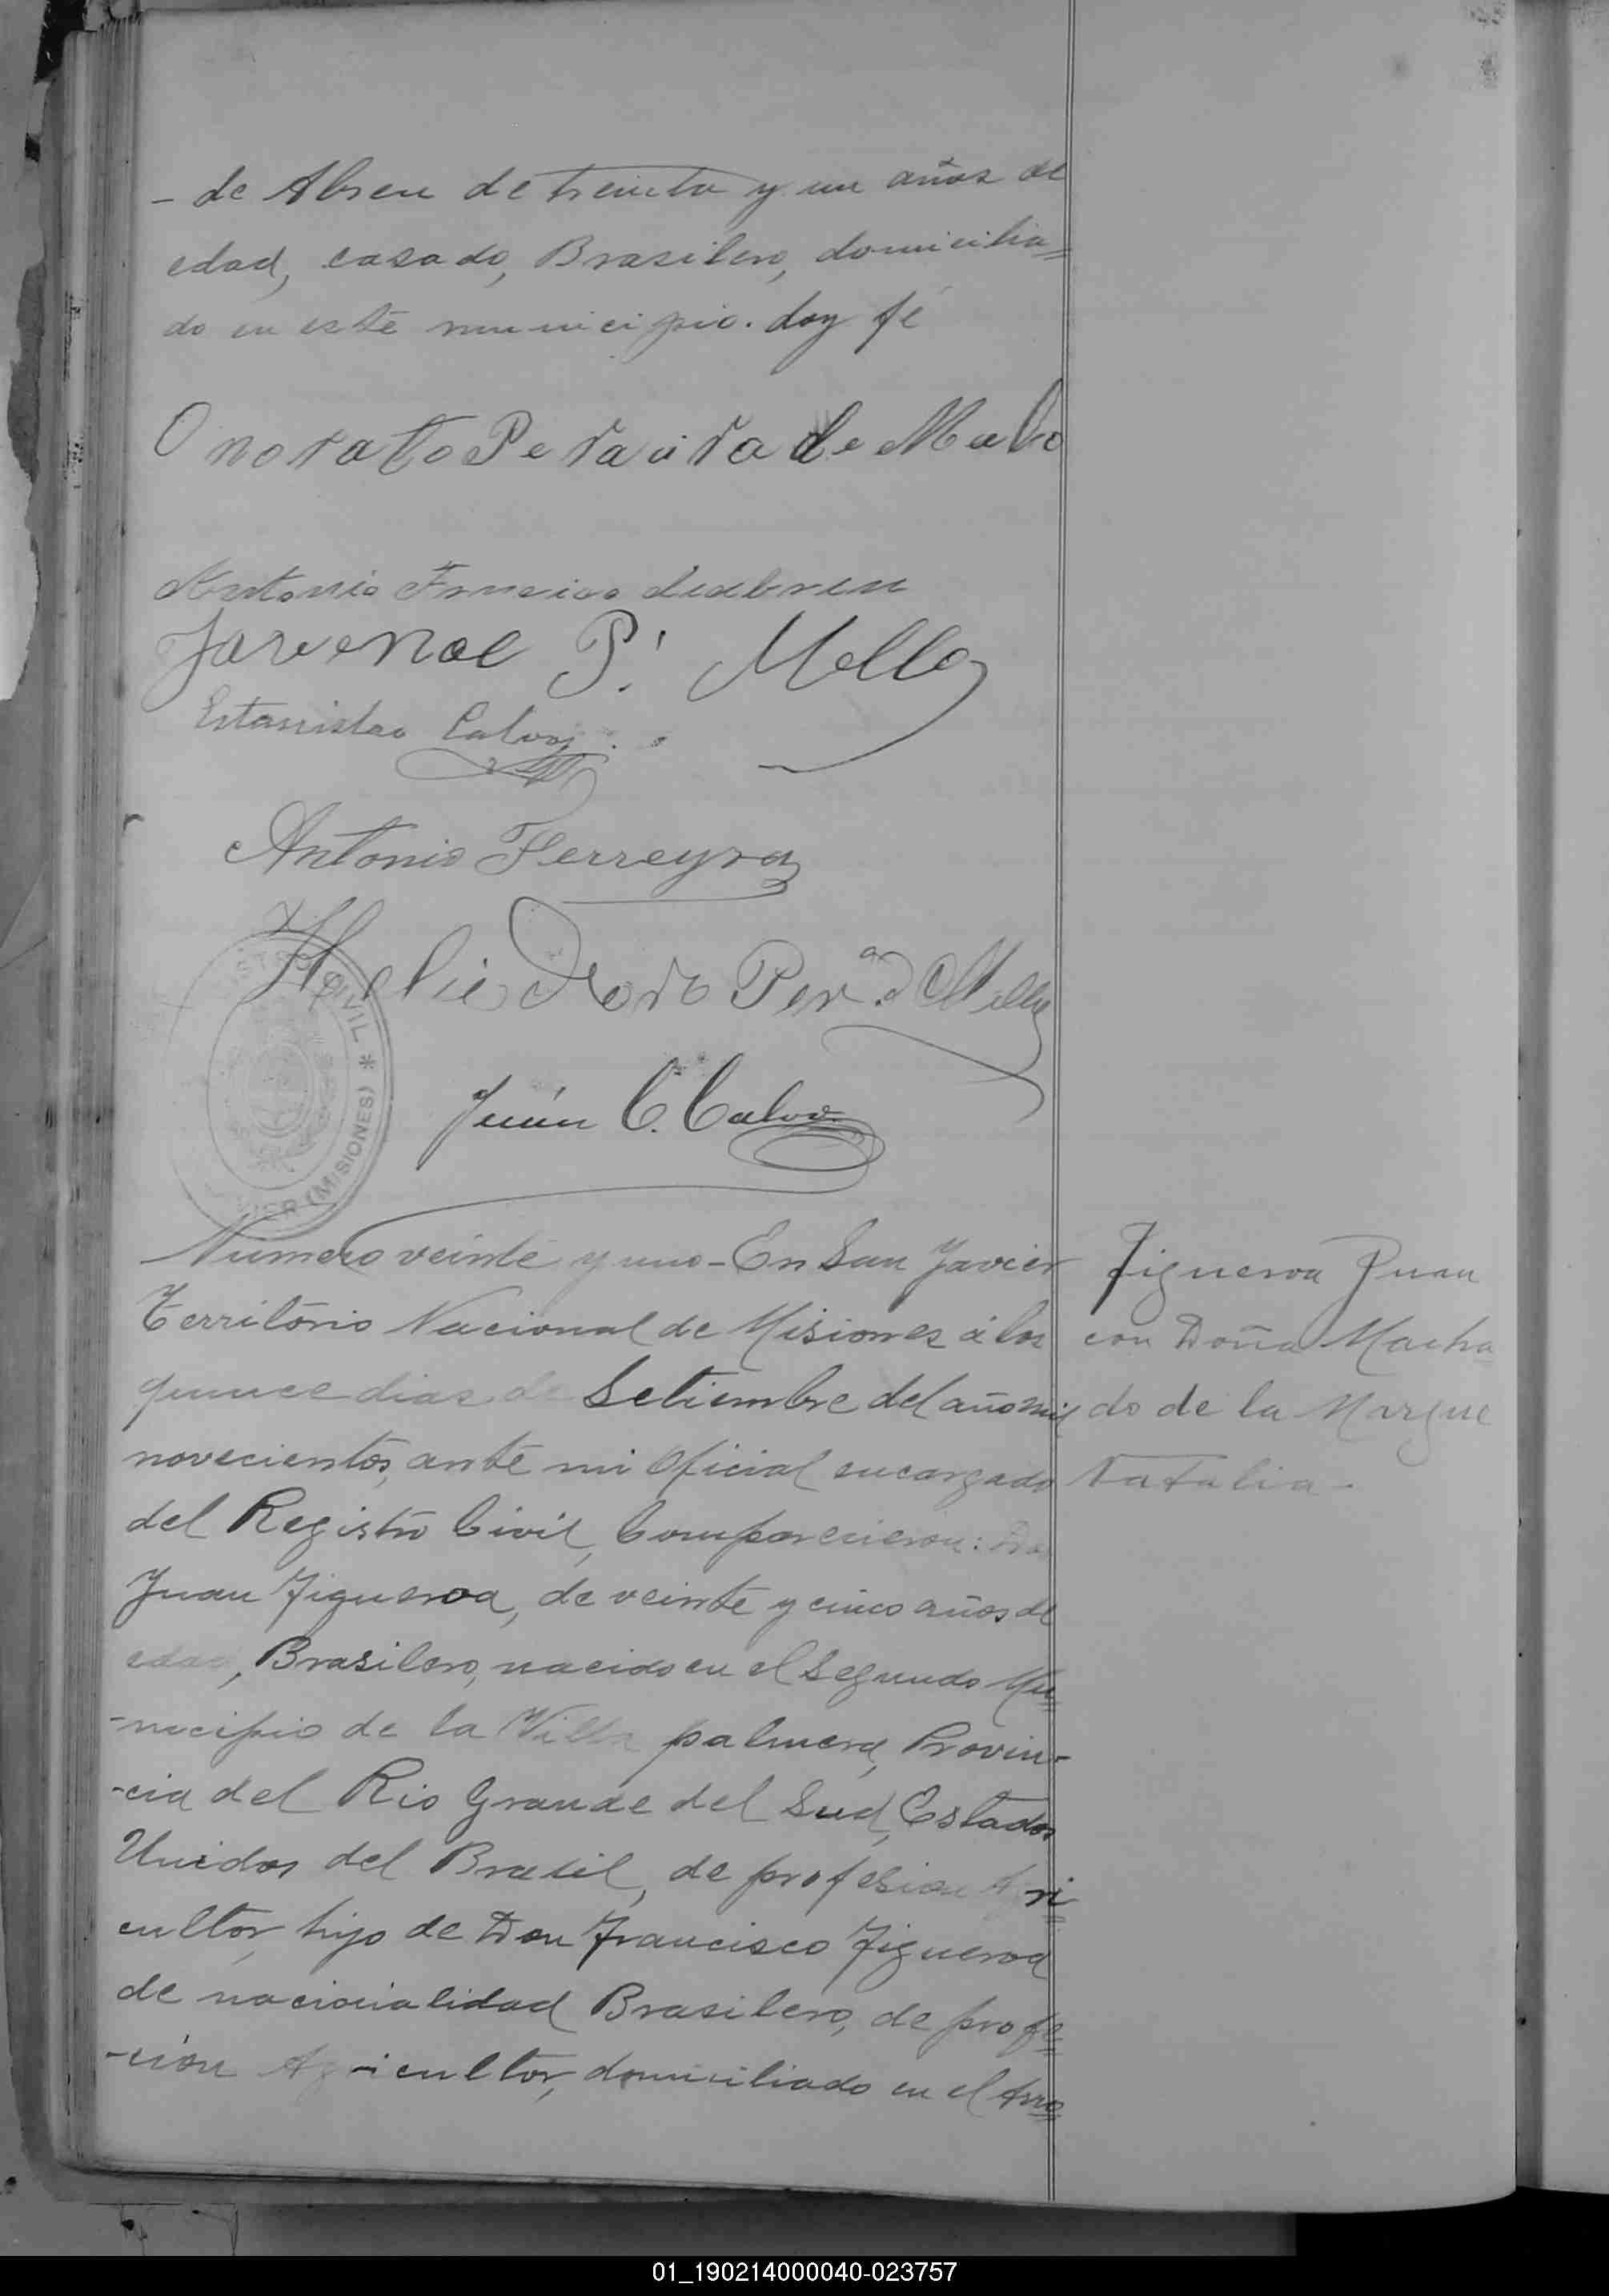 - de Abreu de treinta y un años de
edad, casado, Brasilero, domicilia=
do en este municipio. doy fé
Onorato Peraira de Mello
Antonio Francisco deabreu
Juvenal P. Mello
Estanislao Calvo
Antonio Ferreyra
Heliodoro Perª d Mello
Juán C. Calvo
CIVIL * (MISIONES)
Numero veinte y uno - En San Javier
Territorio Nacional de Misiones á los
quince dias de Setiembre del año mil
novecientos, ante mi Oficial encargado
del Registro Civil, Comparecieron: Don
Juan Figueroa, de veinte y cinco años de
edad, Brasilero, nacido en el Segundo Mu=
-nicipio de la Villa palmera, Provin-
-cia del Rio Grande del Sud, Estados
Unidos del Brasil, de profesion Agri=
cultor, hijo de Don Francisco Figueroa
de nacionalidad Brasilero, de profe=
-cion Agricultor, domiciliado en el Arro=
Figueroa Juan
con Doña Macha=
do de la Marque
Natalia -
01_190214000040-023757